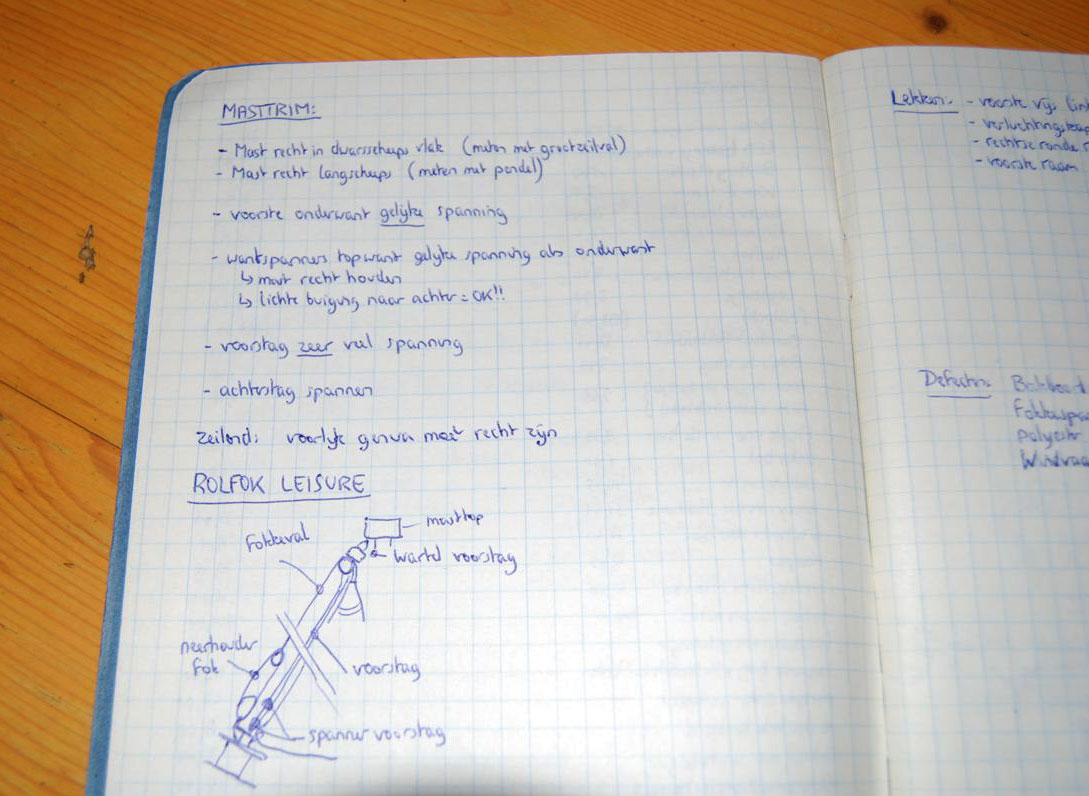 MASTTRIM:
- Mast recht in dwarsscheeps vlak (meten met grootzeilval)
- Mast recht langscheeps (meten met pendel)
- voorste onderwant gelijke spanning
- wantspanners topwant gelijke spanning als onderwant
↳ mast recht houden
↳ lichte buiging naar achter = OK!!
- voorstag zeer veel spanning
- achterstag spannen
Zeilend: voorlijk genua moet recht zijn
ROLFOK LEISURE
masttop
Fokkeval
wartel voorstag
neerhouder
fok
voorstag
spanner voorstag
Lekken: - voorste vijs
- verluchtings
- rechtse ronde
- voorste raam
Defecten: Bakboord
Polyester